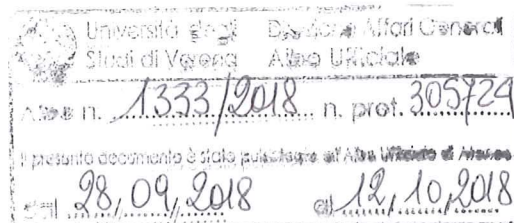 Università degli Direzione Affari Generali
Studi di Verona Albo Ufficiale
Albo n. 1333/2018 n. prot. 305729
Il presente documento è stato pubblicato all'Albo Ufficiale di Ateneo
dal 28,09,2018 al 12,10,2018